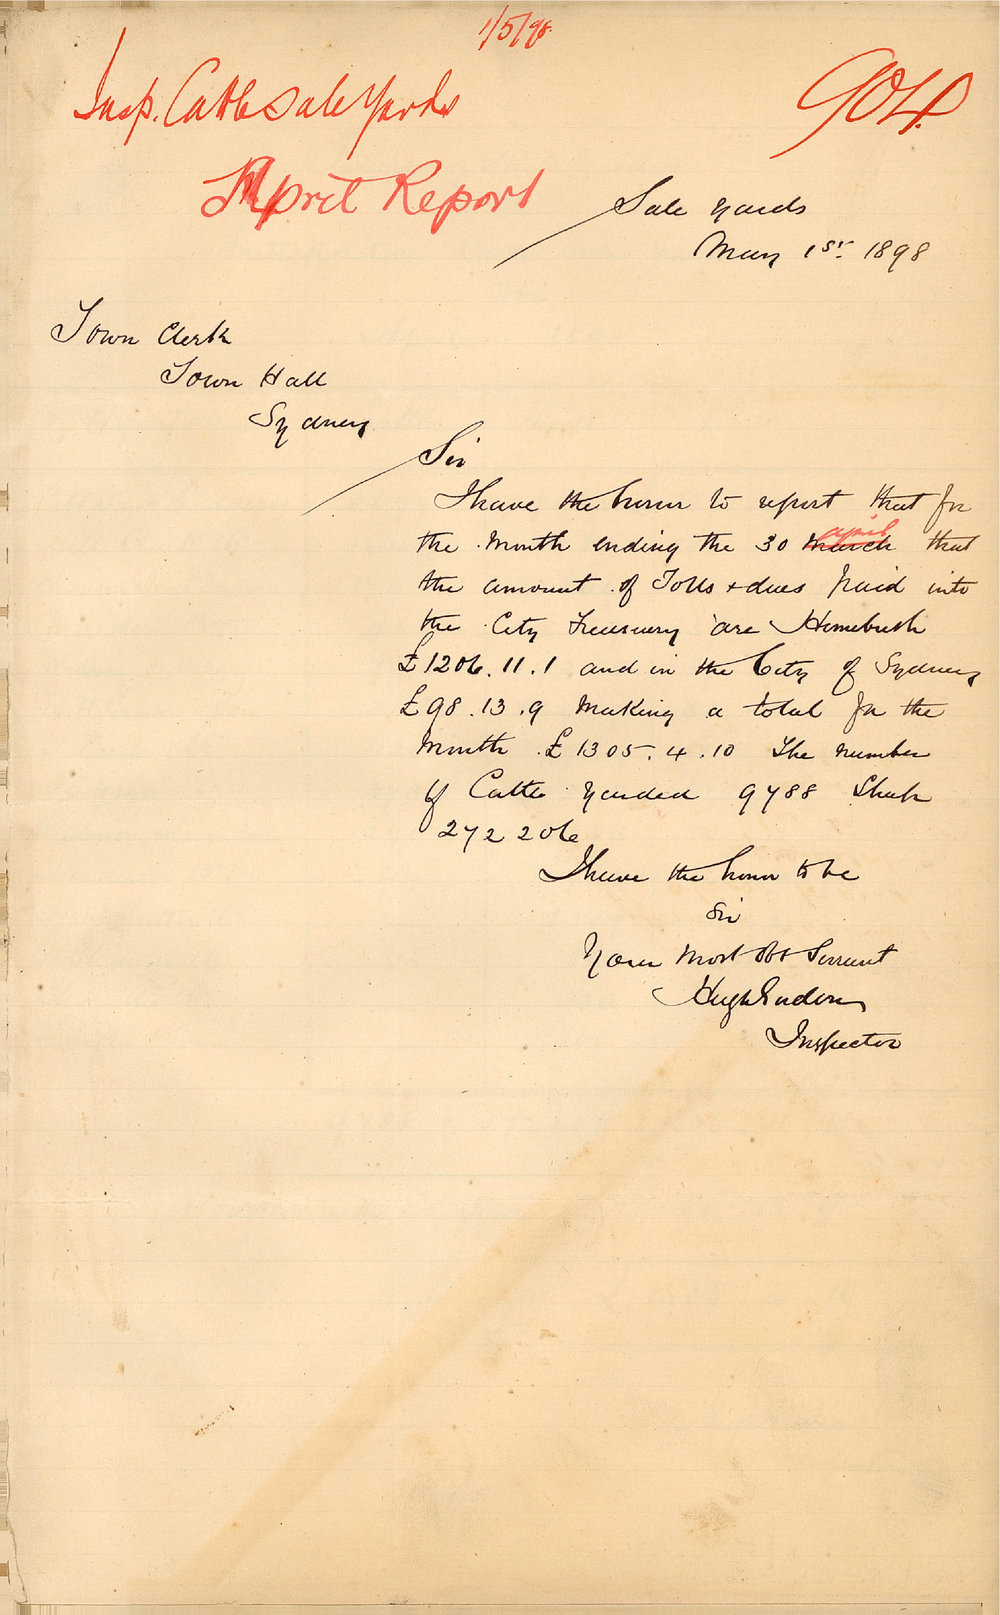 1/5/98.
Insp. Cattle Sale Yards
April Report
Sale Yards
May 1st. 1898
Town Clerk
Town Hall
Sydney
Sir
I have the honor to report that for
april
the Month ending the 30 March that
the amount of Tolls + dues paid into
the City Treasury are Homebush
£1206.11.1 and in the City of Sydney
£98.13.9 Making a total for the
Month £1305.4.10 The number
of Cattle Yarded 9788 Sheep
272206
I have the honor to be
Sir
Your Most Obt Servant
Hugh
Inspector